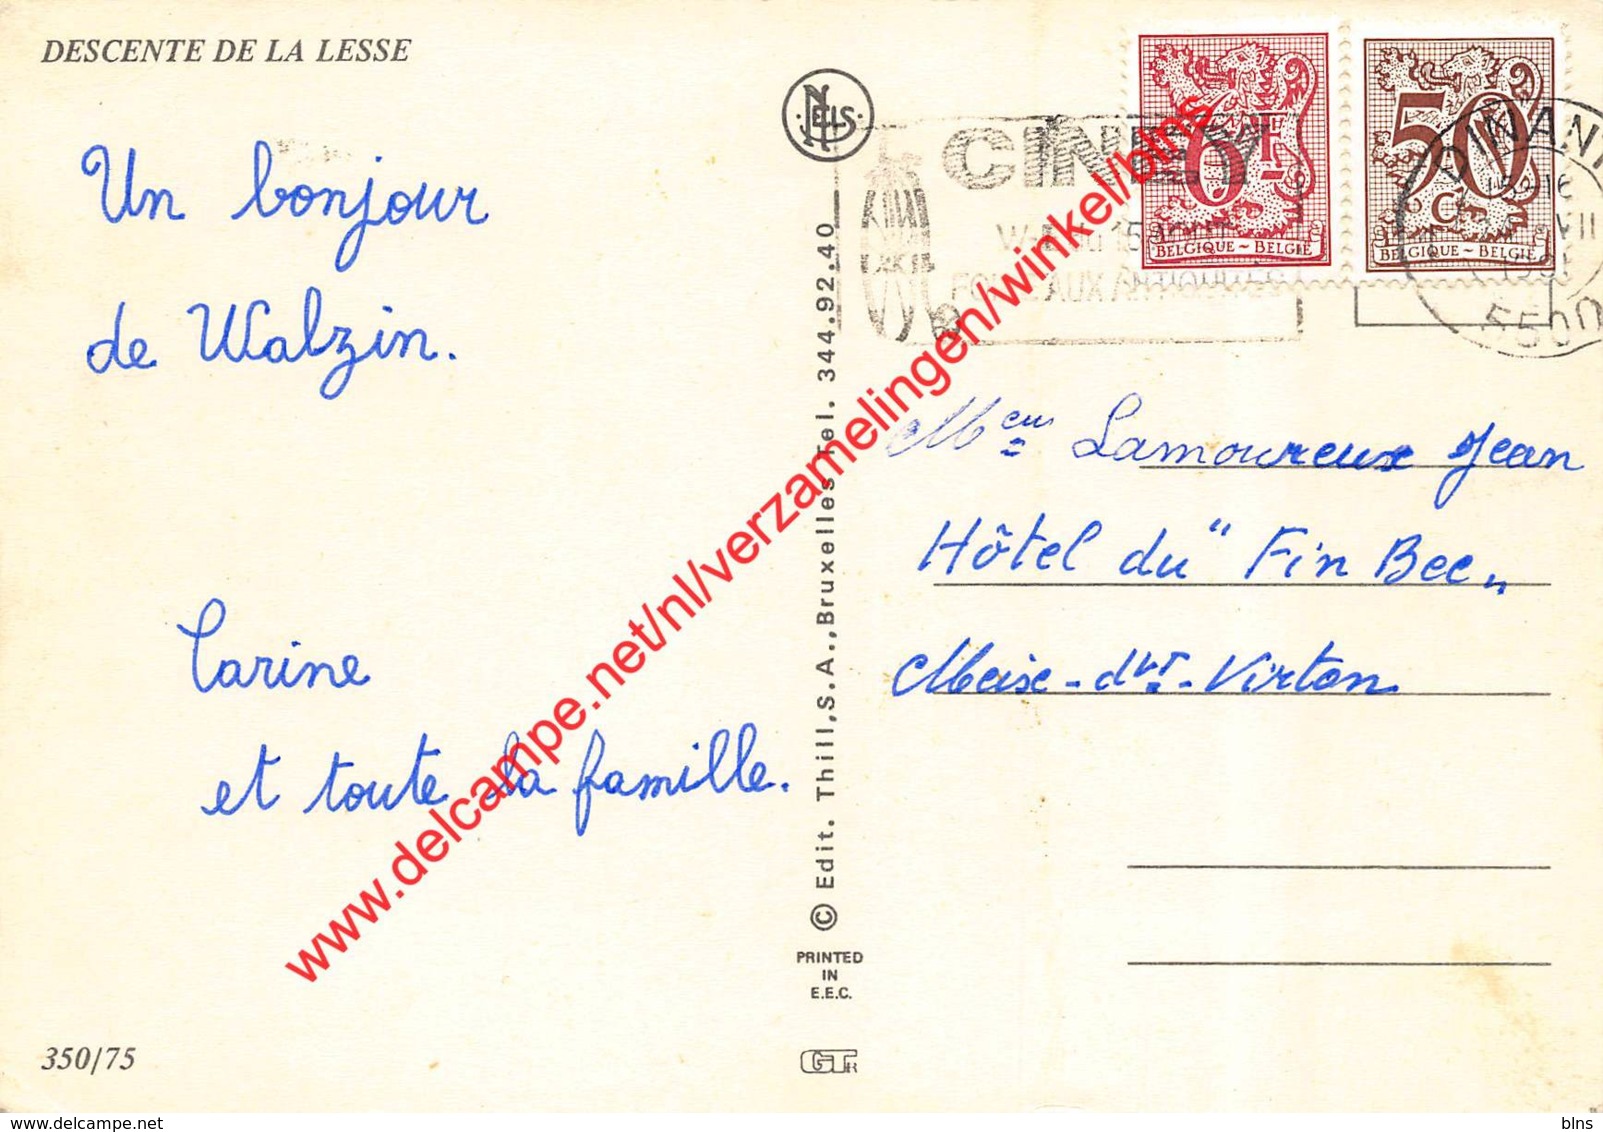 DESCENTE DE LA LESSE
Un bonjour
de Walzin.
Carine
et toute la famille.
350/75
NELS
© Edit. Thill, S.A., Bruxelles Tel. 344.92.40
PRINTED
IN
E.E.C.
GTR
CINEY
FOIRE AUX ANTIQUITÉS
6F
BELGIQUE ~ BELGIË
50
C
BELGIQUE ~ BELGIË
DINANT
15-16
VII
5500
Lamoureux Jean
Hôtel du " Fin Bec "
Meix-dvt-Virton
www.delcampe.net/nl/verzamelingen/winkel/blns
www.delcampe.net
blns